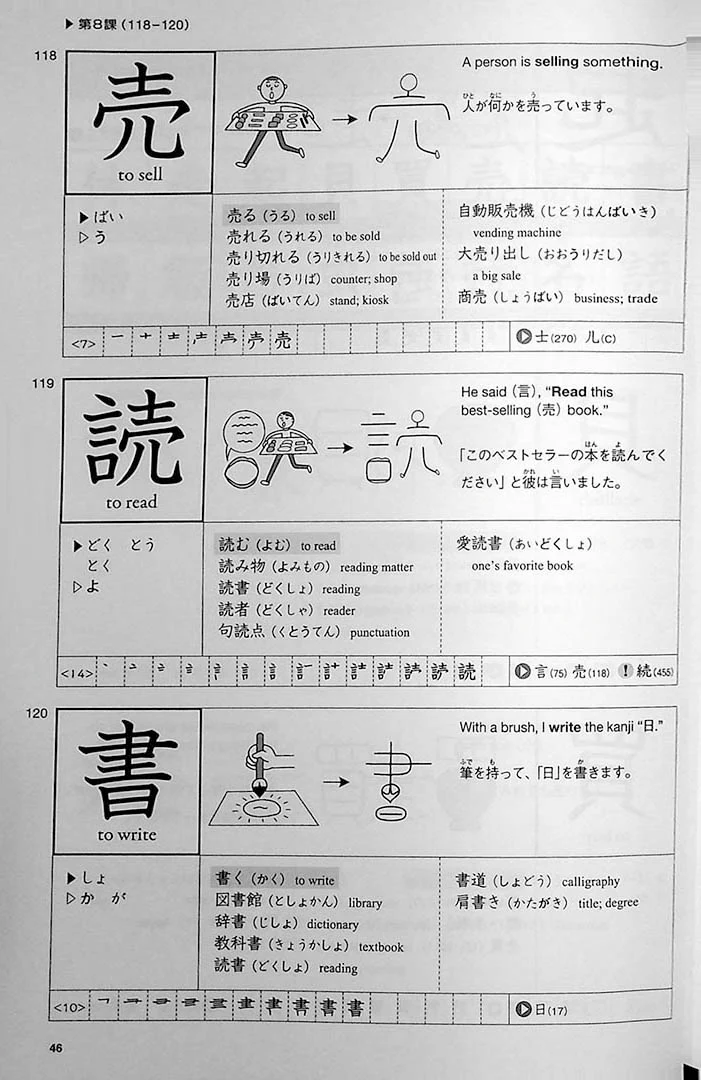 ▶ 第8課(118−120)
118
売
to sell
A person is selling something.
人が何かを売っています。
ひと なに う
▶ばい
▷う
売る(うる) to sell
売れる(うれる) to be sold
売り切れる(うりきれる) to be sold out
売り場(うりば) counter; shop
売店(ばいてん) stand; kiosk
自動販売機(じどうはんばいき)
vending machine
大売り出し(おおうりだし)
a big sale
商売(しょうばい) business; trade
<7>
▶士(270) 儿(C)
119
読
to read
He said (言), “Read this
best-selling (売) book.”
「このベストセラーの本を読んでく
ほん よ
ださい」と彼は言いました。
かれ い
▶どく とう
とく
▷よ
読む(よむ) to read
読み物(よみもの) reading matter
読書(どくしょ) reading
読者(どくしゃ) reader
句読点(くとうてん) punctuation
愛読書(あいどくしょ)
one’s favorite book
<14>
▶言(75) 売(118) !続(455)
120
書
to write
With a brush, I write the kanji “日.”
筆を持って、「日」を書きます。
ふで も か
▶しょ
▷か が
書く(かく) to write
図書館(としょかん) library
辞書(じしょ) dictionary
教科書(きょうかしょ) textbook
読書(どくしょ) reading
書道(しょどう) calligraphy
肩書き(かたがき) title; degree
<10>
▶日(17)
46